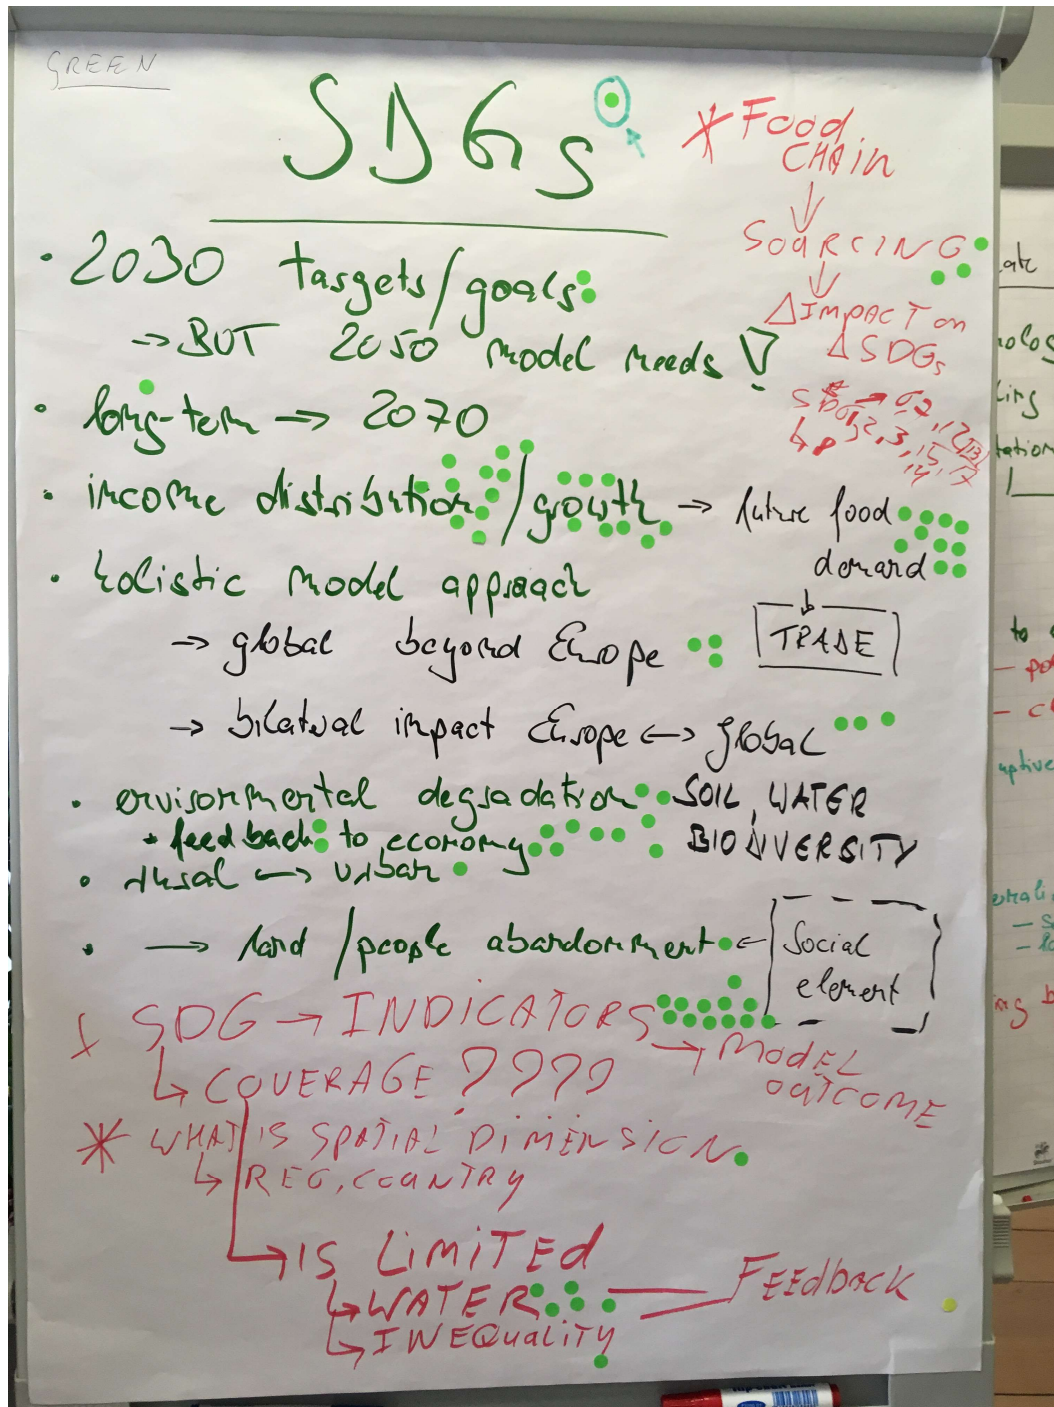 GREEN
SDGs
* Food
CHAIN
↓
SOURCING
↓
△ IMPACT on
△ SDGs
• 2030 targets/goals
→ BUT 2050 model needs !
• long-term → 2070
• income distribution/growth → future food
demand
↓
TRADE
• holistic model approach
→ global beyond Europe
→ bilateral impact Europe ↔ global
• environmental degradation SOIL, WATER
BIODIVERSITY
→ feedback to economy
• rural ↔ urban
• → land/people abandonment ← Social
element
SDG → INDICATORS → MODEL
OUTCOME
↳ COVERAGE ????
* WHAT IS SPATIAL DIMENSION
↳ REG, COUNTRY
↳ IS LIMITED
↳ WATER Feedback
↳ INEQUALITY
to